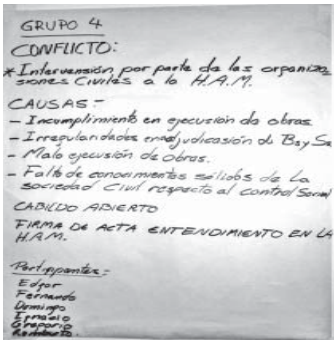 GRUPO 4
CONFLICTO:
* Intervensión por parte de las organiza
siones Civiles a la H.A.M.
CAUSAS:-
- Incumplimiento en ejecusión de obras.
- Irregularidades en adjudicasión de Bs y Ss
- Mala ejecusión de obras.
- Falta de conocimientos sólidos de La
sociedad Civil respecto al control Social
CABILDO ABIERTO
FIRMA DE ACTA ENTENDIMIENTO EN LA
H.A.M.
Participantes:-
Edgar
Fernando
Domingo
Ignacio
Gregorio